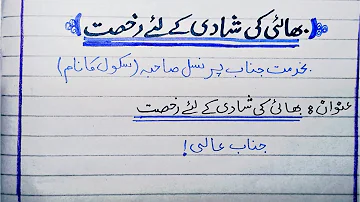 بھائی کی شادی کے لئے رخصت
بخدمت جناب پرنسل صاحبہ (سکول کا نام)
عنوان: بھائی کی شادی کے لئے رخصت
جناب عالی!